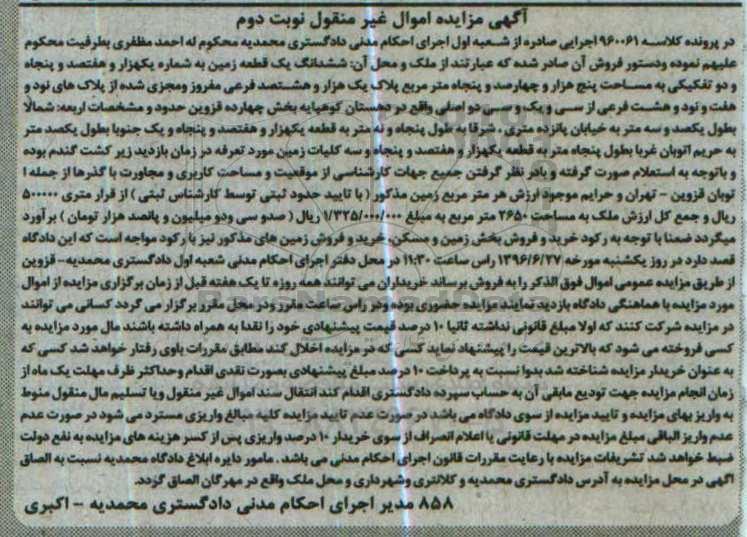 آگهی مزایده اموال غیر منقول نوبت دوم
در پرونده کلاسه ۹۶۰۰۶۱ اجرایی صادره از شعبه اول اجرای احکام مدنی دادگستری محمدیه محکوم له احمد مظفری بطرفیت محکوم
علیهم نموده ودستور فروش آن صادر شده که عبارتند از ملک و محل آن: ششدانگ یک قطعه زمین به شماره یکهزار و هفتصد و پنجاه
و دو تفکیکی به مساحت پنج هزار و چهارصد و پنجاه متر مربع پلاک یک هزار و هشتصد فرعی مفروز ومجزی شده از پلاک های نود و
هفت و نود و هشت فرعی از سی و یک و سی دو اصلی واقع در دهستان کوهپایه بخش چهارده قزوین حدود و مشخصات اربعه: شمالا
بطول یکصد و سه متر به خیابان پانزده متری ، شرقا به طول پنجاه و نه متر به قطعه یکهزار و هفتصد و پنجاه و یک جنوبا بطول یکصد متر
به حریم اتوبان غربا بطول پنجاه متر به قطعه یکهزار و هفتصد و پنجاه و سه کلیات زمین مورد تعرفه در زمان بازدید زیر کشت گندم بوده
و باتوجه به استعلام صورت گرفته و بادر نظر گرفتن جمیع جهات کارشناسی از موقعیت و مساحت کاربری و مجاورت با گذرها از جمله ا
توبان قزوین - تهران و حرایم موجود ارزش هر متر مربع زمین مذکور ( با تایید حدود ثبتی توسط کارشناس ثبتی ) از قرار متری ۵۰۰۰۰۰
ریال و جمع کل ارزش ملک به مساحت ۲۶۵۰ متر مربع به مبلغ ۱/۳۲۵/۰۰۰/۰۰۰ ریال ( صدو سی ودو میلیون و پانصد هزار تومان ) برآورد
میگردد ضمنا با توجه به رکود خرید و فروش بخش زمین و مسکن، خرید و فروش زمین های مذکور نیز با رکود مواجه است که این دادگاه
قصد دارد در روز یکشنبه مورخه ۱۳۹۶/۶/۲۷ راس ساعت ۱۱:۳۰ در محل دفتر اجرای احکام مدنی شعبه اول دادگستری محمدیه- قزوین
از طریق مزایده عمومی اموال فوق الذکر را به فروش برساند خریداران می توانند همه روزه تا یک هفته قبل از زمان برگزاری مزایده از اموال
مورد مزایده با هماهنگی دادگاه بازدید نمایند مزایده حضوری بوده ودر راس ساعت مقرر ودر محل مقرر برگزار می گردد کسانی می توانند
در مزایده شرکت کنند که اولا مبلغ قانونی نداشته ثانیا ۱۰ درصد قیمت پیشنهادی خود را نقدا به همراه داشته باشند مال مورد مزایده به
کسی فروخته می شود که بالاترین قیمت را پیشنهاد نماید کسی که در مزایده اخلال کند مطابق مقررات باوی رفتار خواهد شد کسی که
به عنوان خریدار مزایده شناخته شد بدوا نسبت به پرداخت ۱۰ درصد مبلغ پیشنهادی بصورت نقدی اقدام وحداکثر ظرف مهلت یک ماه از
زمان انجام مزایده جهت تودیع مابقی آن به حساب سپرده دادگستری اقدام کند انتقال سند اموال غیر منقول ویا تسلیم مال منقول منوط
به واریز بهای مزایده و تایید مزایده از سوی دادگاه می باشد در صورت عدم تایید مزایده کلیه مبالغ واریزی مسترد می شود در صورت عدم
عدم واریز الباقی مبلغ مزایده در مهلت قانونی یا اعلام انصراف از سوی خریدار ۱۰ درصد واریزی پس از کسر هزینه های مزایده به نفع دولت
ضبط خواهد شد تشریفات مزایده با رعایت مقررات قانون اجرای احکام مدنی می باشد . مامور دایره ابلاغ دادگاه محمدیه نسبت به الصاق
اگهی در محل مزایده به آدرس دادگستری محمدیه و کلانتری وشهرداری و محل ملک واقع در مهرگان الصاق گردد.
۸۵۸ مدیر اجرای احکام مدنی دادگستری محمدیه - اکبری